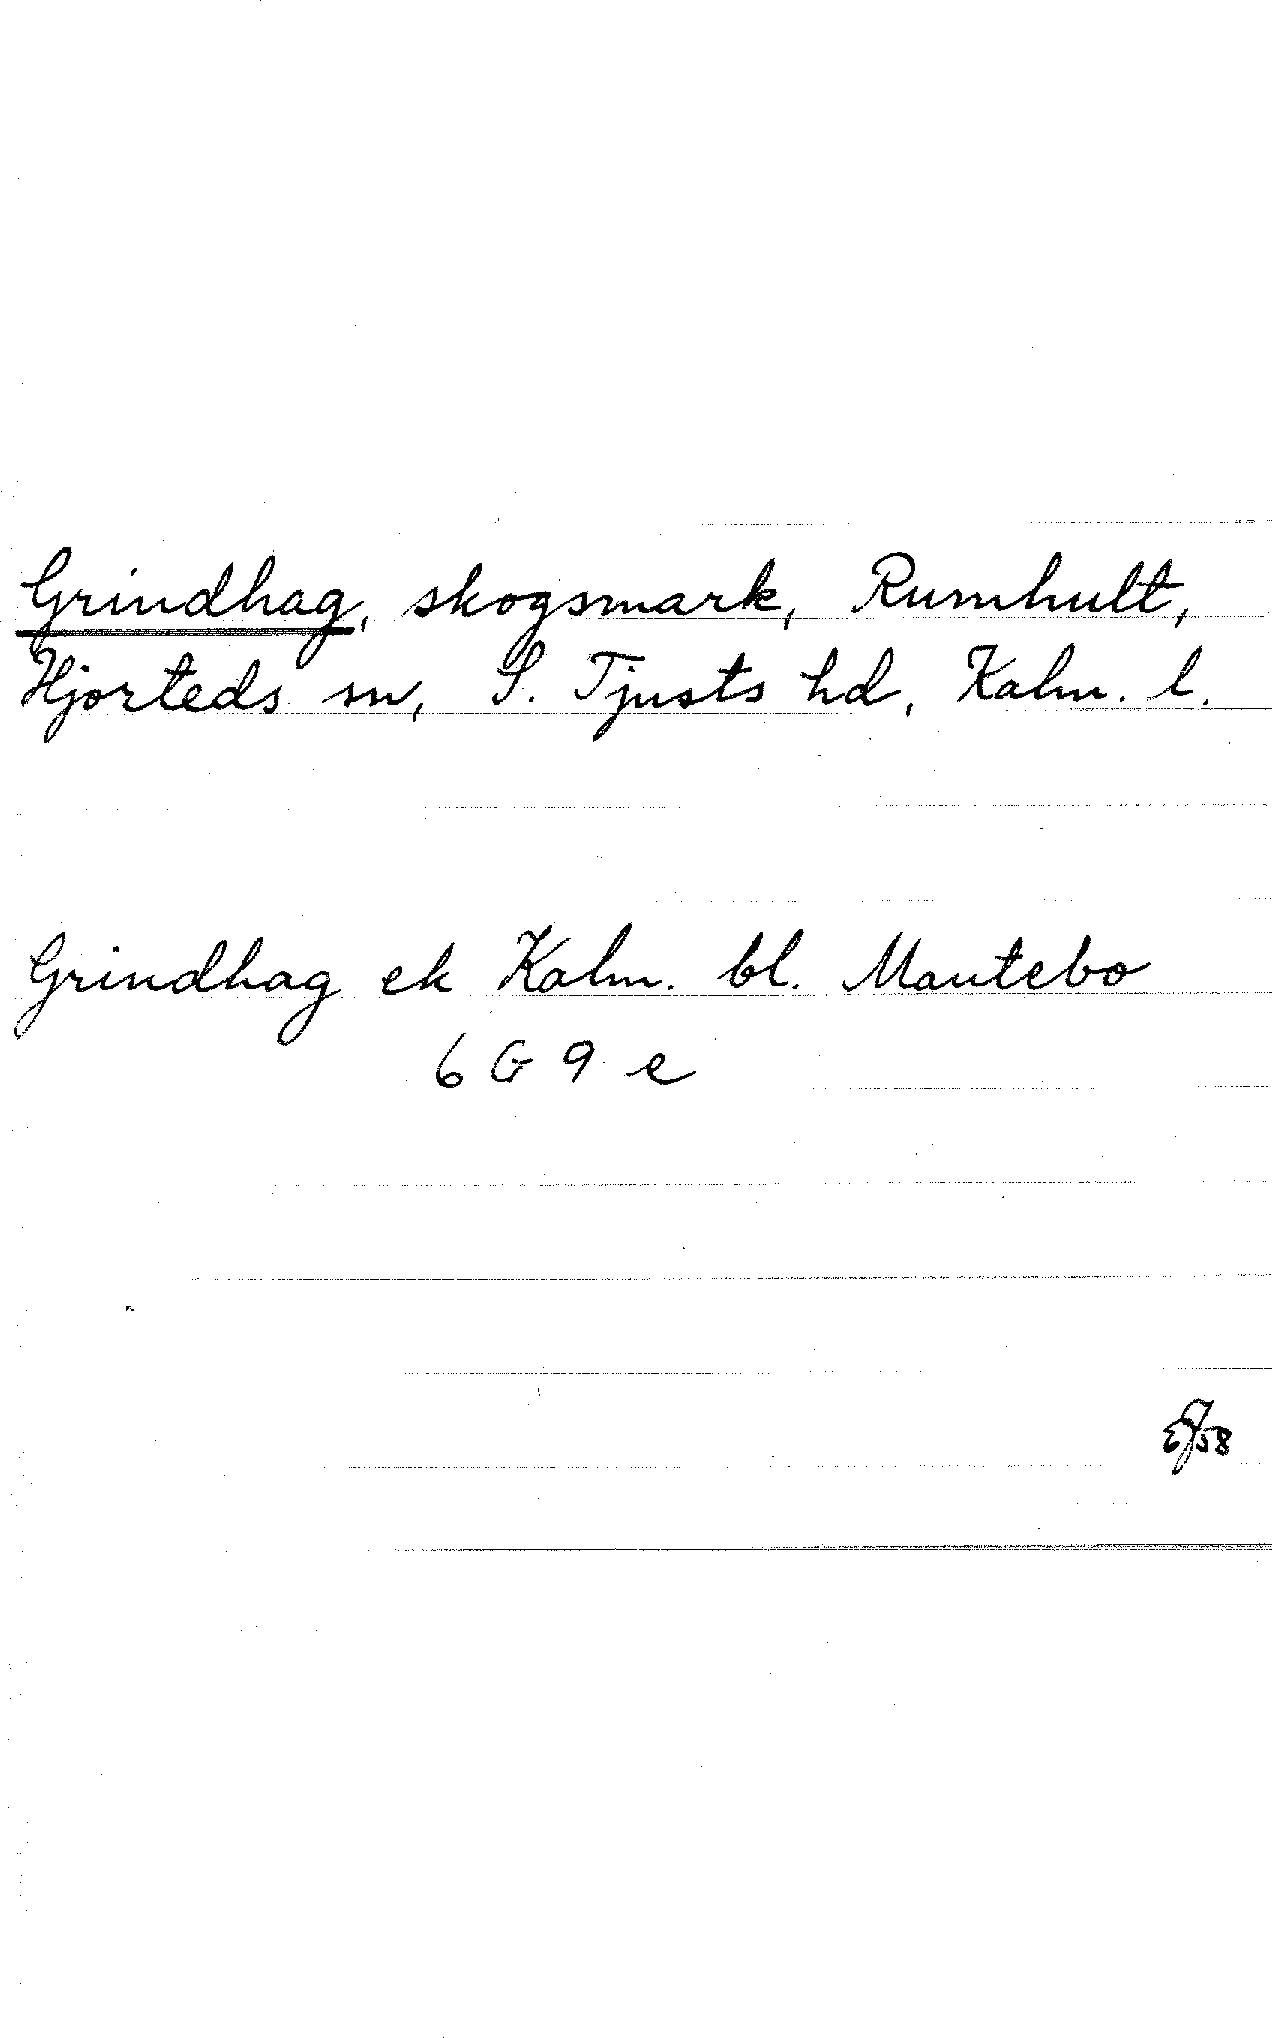 Grindhag, skogsmark, Rumhult,
Hjorteds sn, S. Tjusts hd, Kalm. l.
Grindhag ek Kalm. bl. Mantebo
6 G 9 e
EJ58